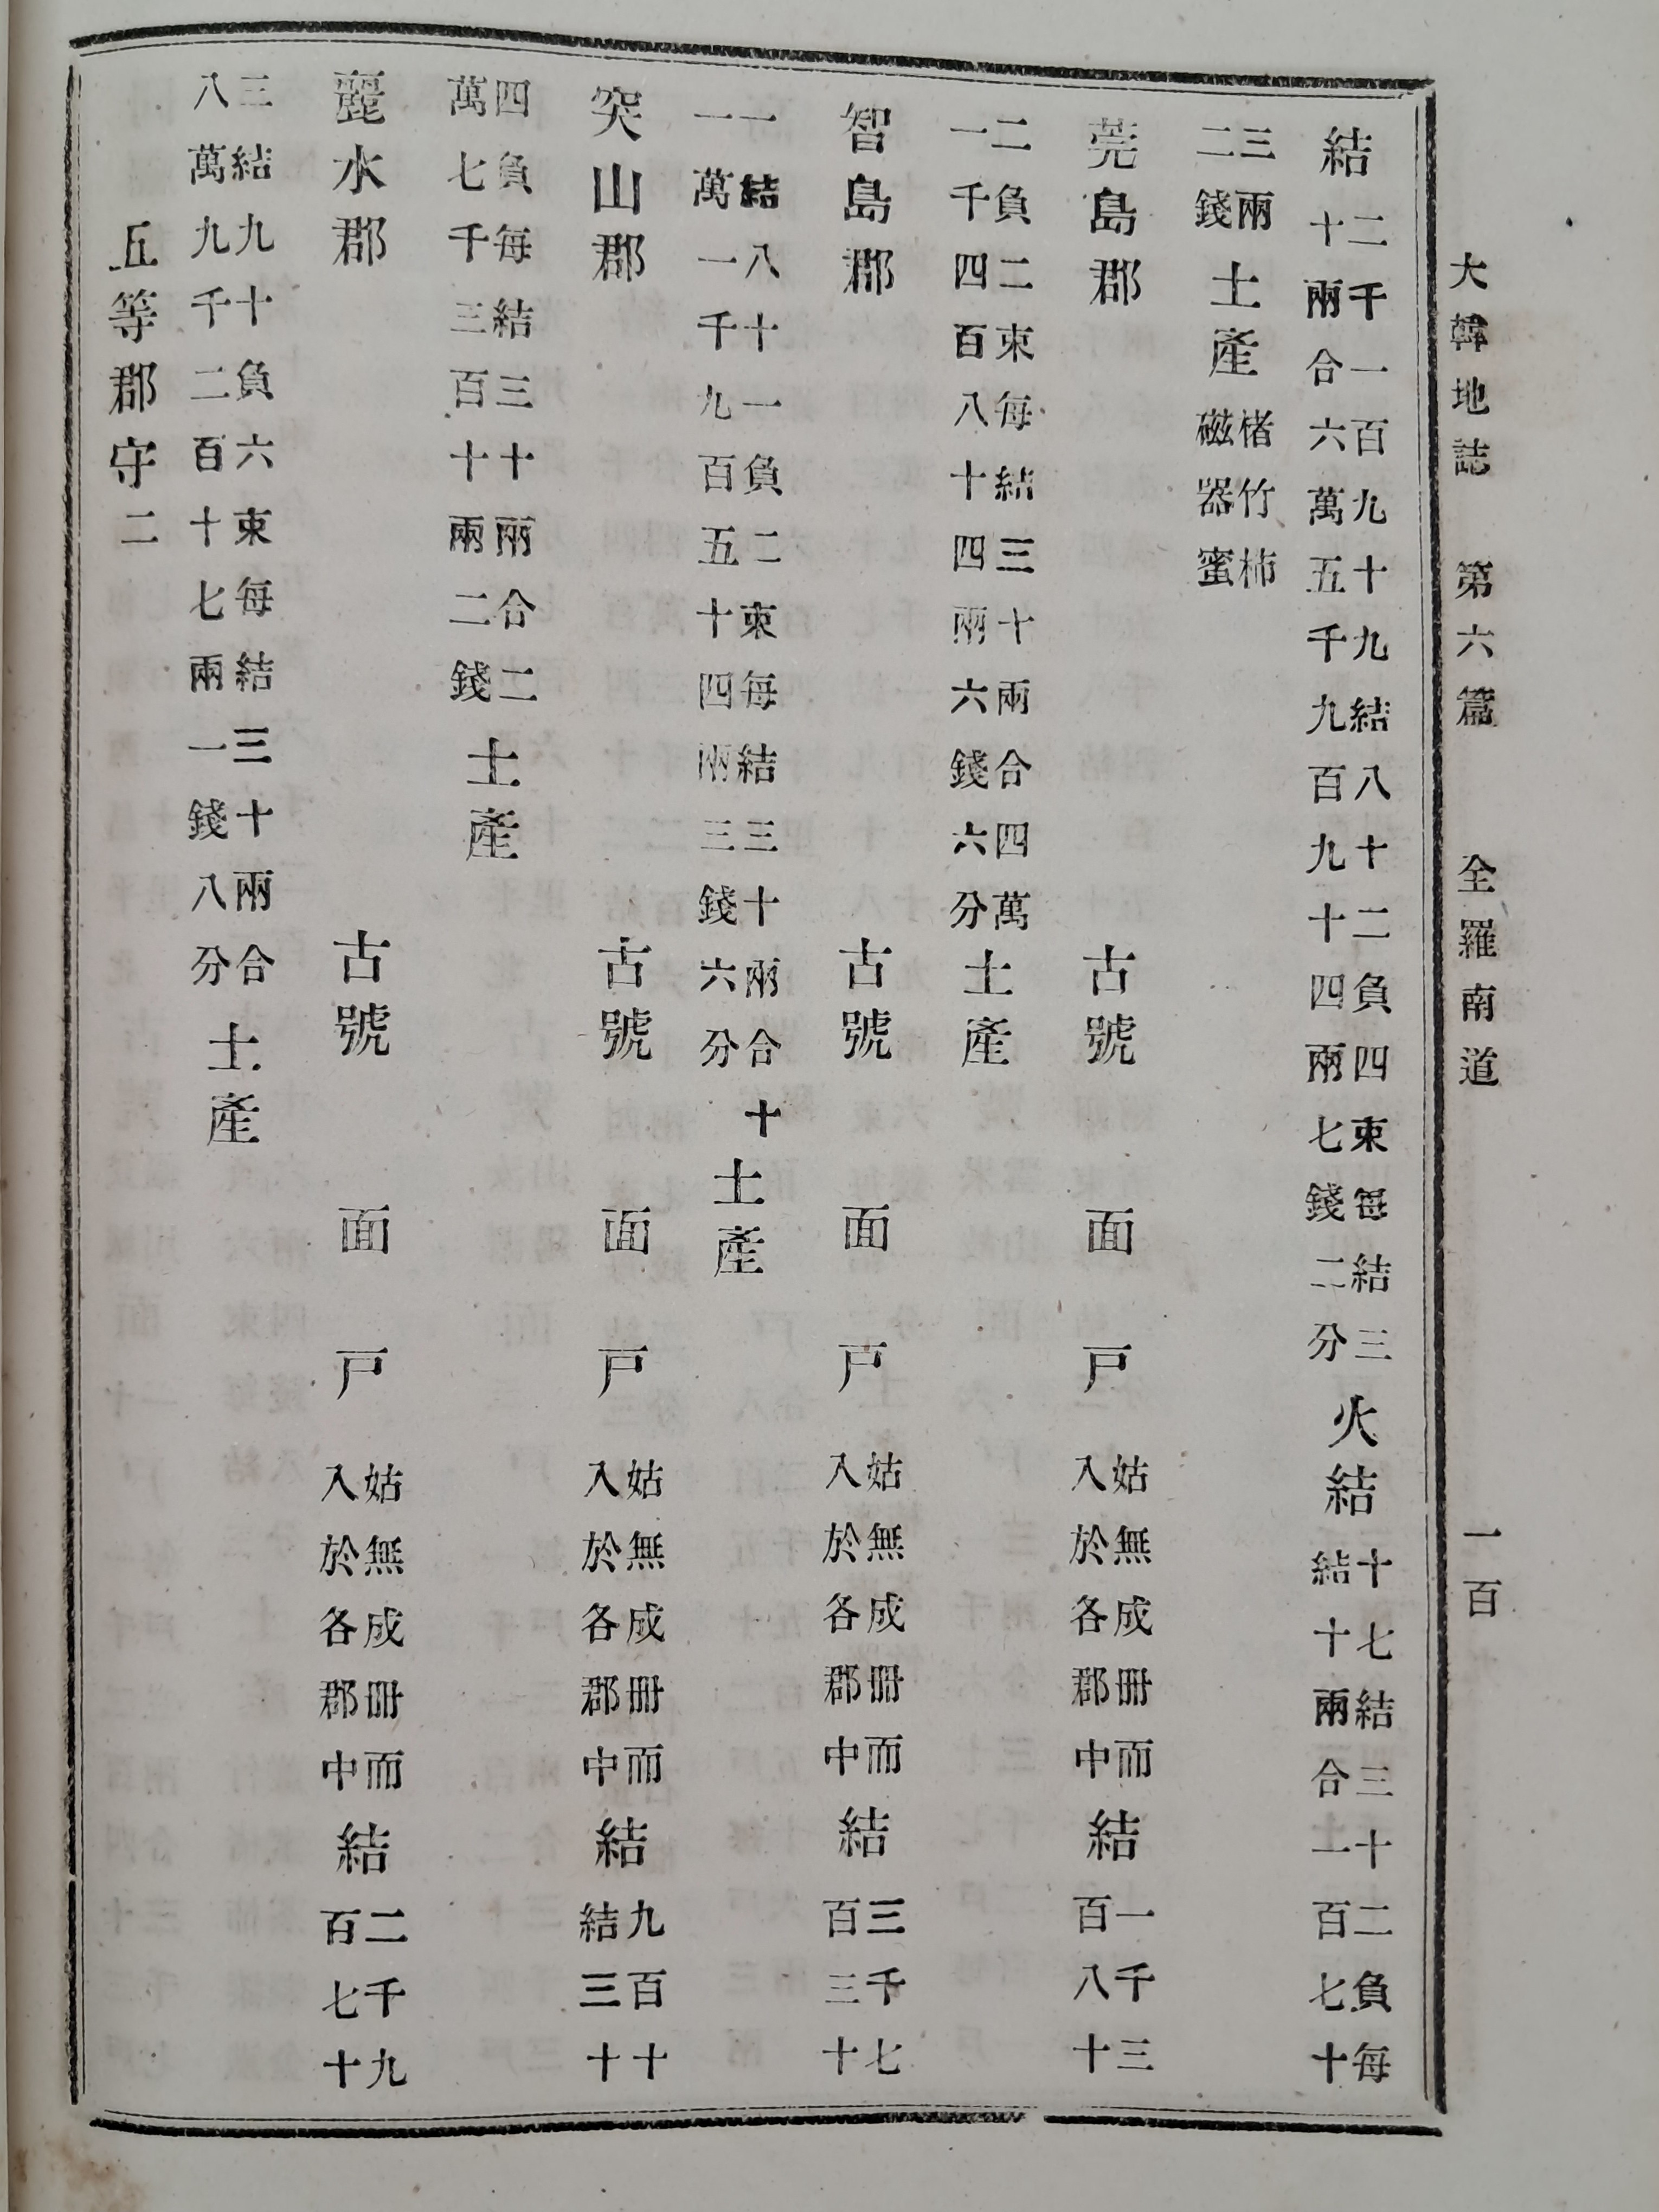 大韓地誌 第六篇 全羅南道 一百
結 二千一百九十九結八十二負四束每結三
十兩合六萬五千九百九十四兩七錢二分
火結 十七結三十二負每
結十兩合一百七十
三兩
二錢
土產 楮竹柿
磁器蜜
莞島郡 古號 面 戶 姑無成冊而
入於各郡中
結 一千三
百八十
二負二束每結三十兩合四萬
一千四百八十四兩六錢六分
土產
智島郡 古號 面 戶 姑無成冊而
入於各郡中
結 三千七
百三十
一結八十一負二束每結三十兩合十
一萬一千九百五十四兩三錢六分
土產
突山郡 古號 面 戶 姑無成冊而
入於各郡中
結 九百十
結三十
四負每結三十兩合二
萬七千三百十兩二錢
土產
麗水郡 古號 面 戶 姑無成冊而
入於各郡中
結 二千九
百七十
三結九十負六束每結三十兩合
八萬九千二百十七兩一錢八分
土產
五等郡守二